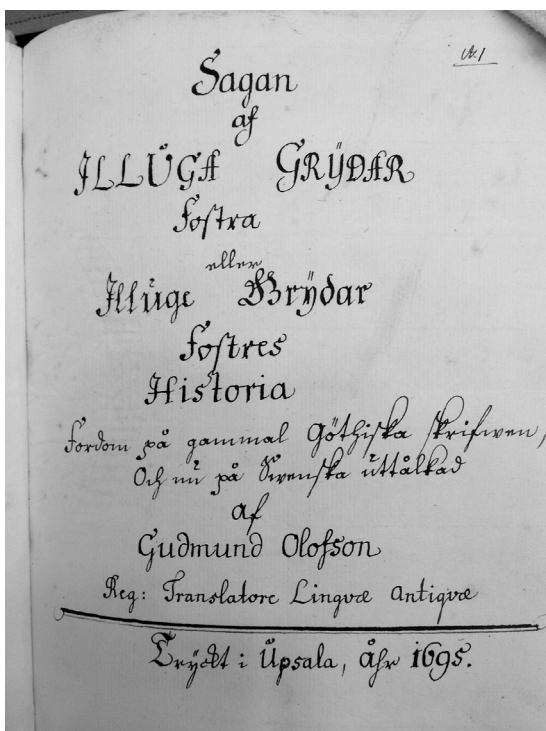 Sagan
af
ILLŮGA GRŸDAR
Fostra
eller
Illůge Grÿdar
Fostres
Historia
Fordom på gammal Göthiska skrifwen,
Och nů på Swenska ůttålkad
af
Gudmund Olofson
Reg: Translatore Lingvæ Antiqvæ
Tryckt i Ůpsala, Åhr 1695.